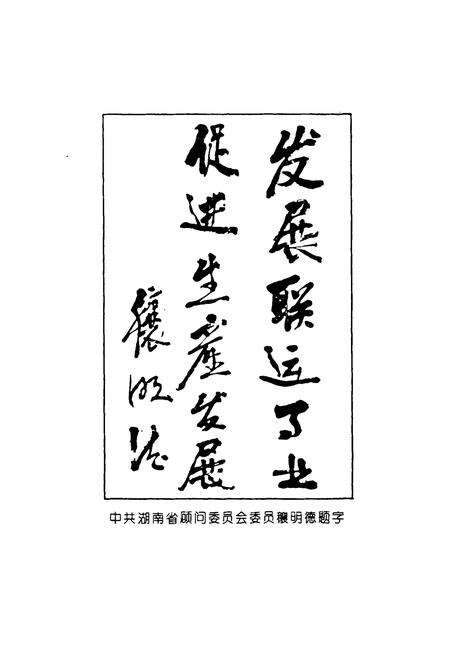 发展联运事业
促进生产发展
穰明德
中共湖南省顾问委员会委员穰明德题字